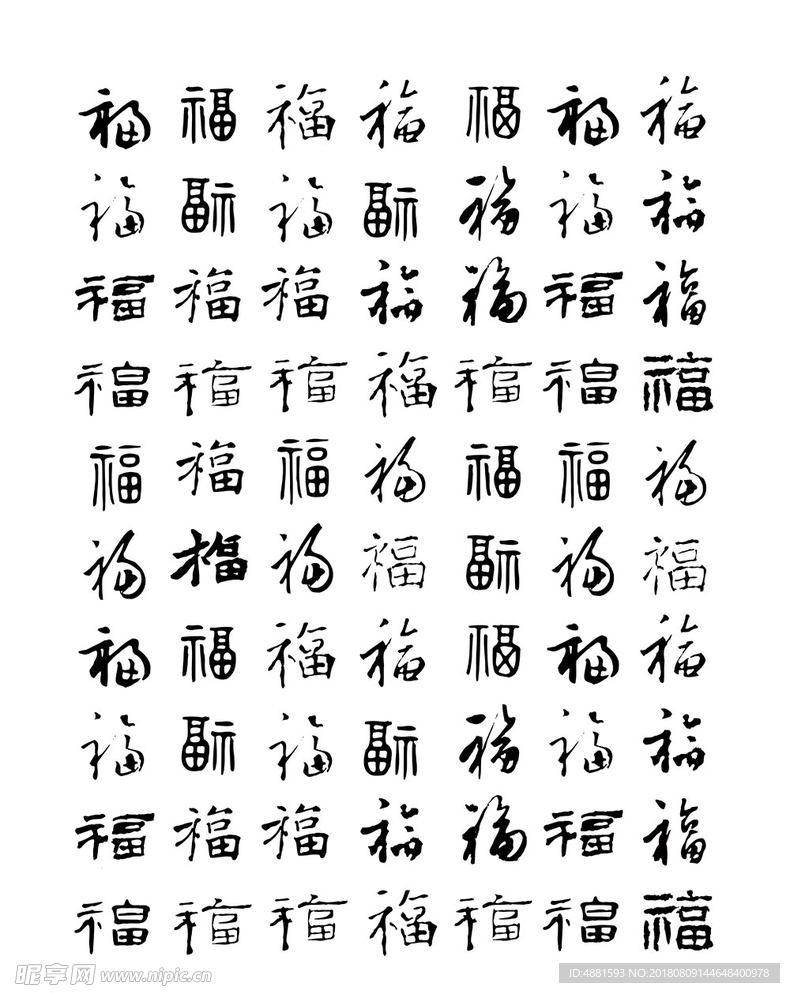 福 福 福 福 福 福 福
福 福 福 福 福 福 福
福 福 福 福 福 福 福
福 福 福 福 福 福 福
福 福 福 福 福 福 福
福 福 福 福 福 福 福
福 福 福 福 福 福 福
福 福 福 福 福 福 福
福 福 福 福 福 福 福
福 福 福 福 福 福 福
昵享网 www.nipic.cn
ID:4881593 NO:20180809144648400978